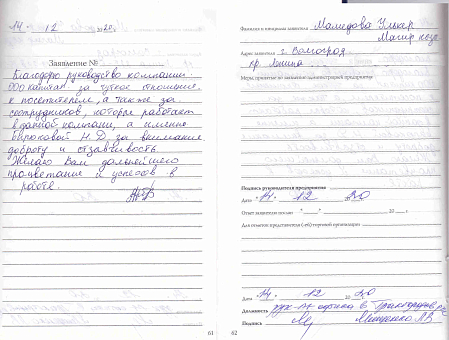 14 12 2020
Заявление №
Благодарю руководство компании
ООО Капитал за чуткое отношение
к посетителем, а также за
сотрудников, которые работает
в данной компании, а именно
Бирюковой Н.Д за внимание
доброту и отзывчивость
Желаю Вам дальнейшего
процветание и успехов в
работе.
61
Фамилия и инициалы заявителя Мамедова Улькар
Адрес заявителя г. Волгоград
пр. Ленина
Меры, принятые по заявлению администрацией предприятия:
Подпись руководителя предприятия
Дата 14. 12 20
Ответ заявителю послан " " 20 г.
Для отметки представителя (-ей) торговой организации
Дата 14. 12 2020
Должность рук-ль офиса в
Подпись Мищенко А.В
62